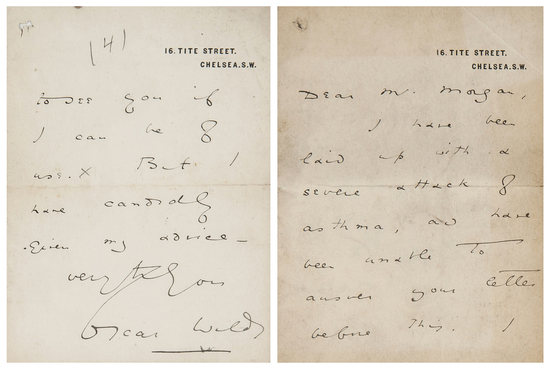 (4)
16. TITE STREET.
CHELSEA.S.W.
to see you if
I can be of
use. X But I
have candidly
given my advice —
very truly yours
Oscar Wilde
16. TITE STREET.
CHELSEA.S.W.
Dear Mr. Morgan,
I have been
laid up with a
severe attack of
asthma, and have
been unable to
answer your letter
before this. I